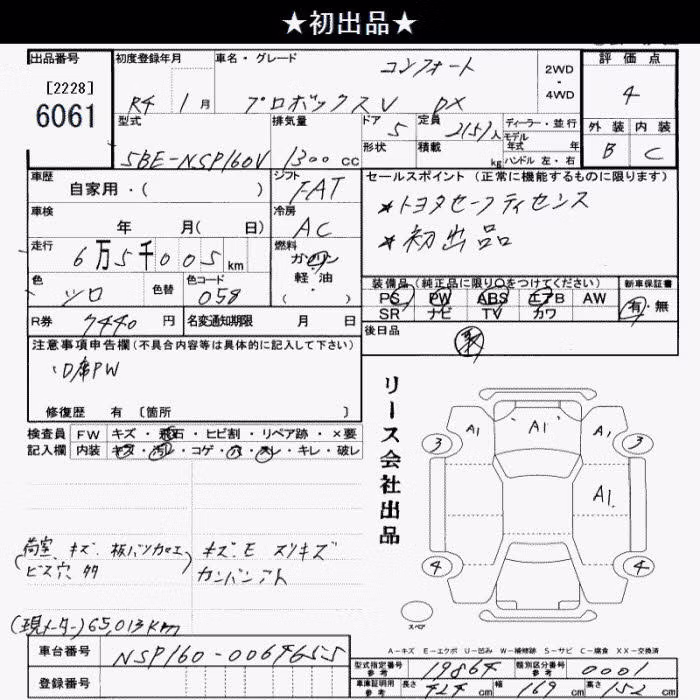 ★初出品★
出品番号
[2228]
6061
初度登録年月
R4 1月
車名・グレード
コンフォート
プロボックスV DX
2WD
・
4WD
評価点
4
外装 内装
B C
型式
5BE-NSP160V
排気量
1300cc
ドア 5
形状
定員 2(5)人
積載 kg
ディーラー・並行
モデル
年式 年
ハンドル 左・右
車歴
自家用・( )
シフト
FAT
車検
年 月( 日)
冷房
AC
走行
6万5千005km
燃料
ガソリン
軽・油
( )
色
シロ
色替
色コード
058
R券 7440円
名変通知期限 月 日
セールスポイント(正常に機能するものに限ります)
*トヨタセーフティセンス
*初出品
装備品(純正品に限り○をつけてください)
PS PW ABS エアB AW
SR ナビ TV カワ
新車保証書
有・無
後日品
注意事項申告欄(不具合内容等は具体的に記入して下さい)
D席PW
修復歴 有 〔箇所 〕
検査員 FW キズ・飛石・ヒビ割・リペア跡・×要
記入欄 内装 キズ・汚レ・コゲ・穴・スレ・キレ・破レ
リース会社出品
A1 A1 A1
3 3
A1
4 4
スペア
(荷室、キズ、板バツカエ
ビス穴 )
キズ・E スリキズ
カンバンアト
(現メーター)65,013km
A-キズ E-エクボ U-凹み W-補修跡 S-サビ C-腐食 XX-交換済
車台番号 NSP160-0064655
登録番号
型式指定番号
参考
19864
類別区分番号
参考
0001
車庫証明用
参考
長さ 424cm 幅 169cm 高さ 152cm